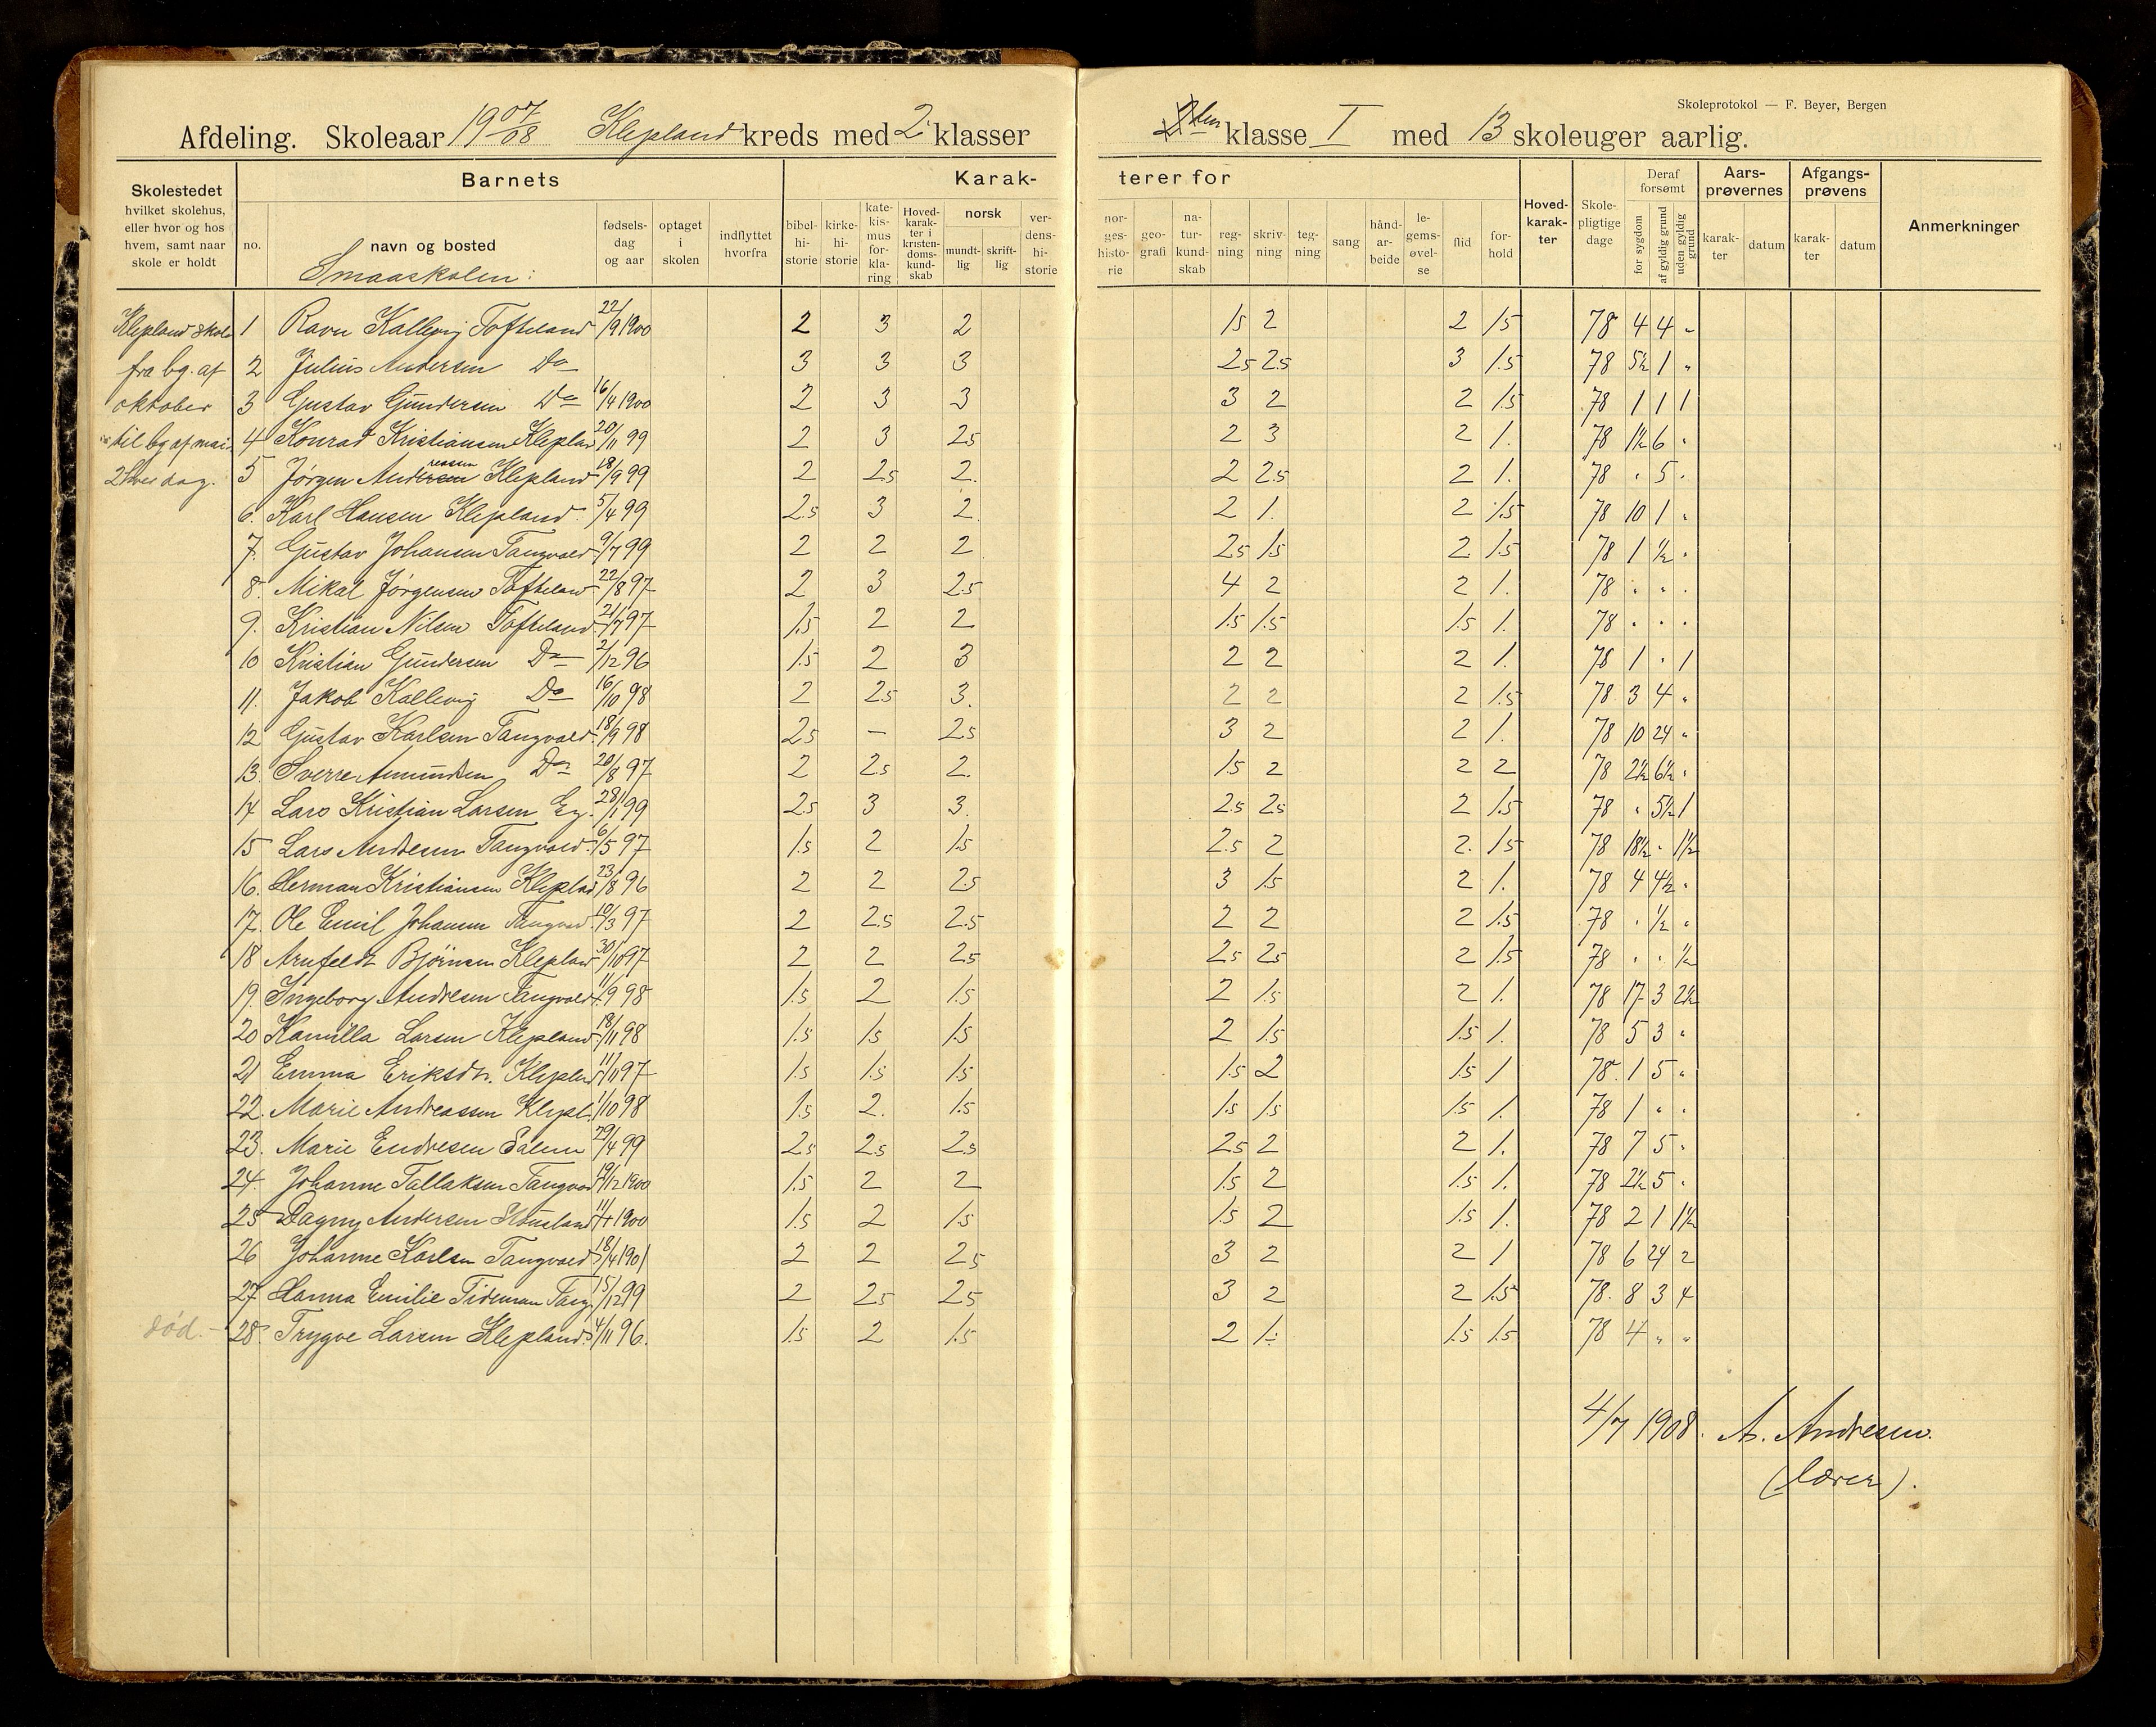 Skoleprotokol — F. Beyer, Bergen
Afdeling. Skoleaar 1907/08 Klepland kreds med 2 klasser
klasse I med 13 skoleuger aarlig.
Skolestedet hvilket skolehus, eller hvor og hos hvem, samt naar skole er holdt
Barnets
no.
navn og bosted
Smaaskolen:
fødsels-dag og aar
optaget i skolen
indflyttet hvorfra
Karak-
terer for
bibel-hi-storie
kirke-hi-storie
kate-kis-mus for-kla-ring
Hoved-karak-ter i kristen-doms-kund-skab
norsk
mundt-lig
skrift-lig
ver-dens-hi-storie
nor-ges-histo-rie
geo-grafi
na-tur-kund-skab
reg-ning
skriv-ning
teg-ning
sang
hånd-ar-beide
le-gems-øvel-se
flid
for-hold
Hoved-karak-ter
Skole-pligtige dage
Deraf forsømt
for sygdom
af gyldig grund
uden gyldig grund
Aars-prøvernes
karak-ter
datum
Afgangs-prøvens
karak-ter
datum
Anmerkninger
Klepland skole 1 Ravn Kallevig Tofteland 22/9 1900 2 3 2 1.5 2 2 1.5 78 4 4 "
fra bg. af 2 Julius Andersen Do 3 3 3 2.5 2.5 3 1.5 78 5½ 1 "
oktober 3 Gustav Gundersen Do 16/4 1900 2 3 3 3 2 2 1.5 78 1 1 1
til bg af mai 4 Konrad Kristiansen Klepland 20/11 99 2 3 2.5 2 3 2 1. 78 1½ 6 "
2hver dag. 5 Jørgen Andreassen Klepland 18/9 99 2 2.5 2. 2 2.5 2 1. 78 " 5 "
6. Karl Hansen Klepland 5/4 99 2.5 3 2. 2 1. 2 1.5 78 10 1 "
7. Gustav Johansen Tangvald 9/7 99 2 2 2 2.5 1.5 2 1.5 78 1 ½ "
8. Mikal Jørgensen Tofteland 22/8 97 2 3 2.5 4 2 2 1. 78 " " "
9. Kristian Nilsen Tofteland 21/7 97 1.5 2 2 1.5 1.5 1.5 1. 78 " " "
10 Kristian Gundersen Do 2/12 96 1.5 2 3 2 2 2 1. 78 1 " 1
11. Jakob Kallevig Do 16/10 98 2 2.5 3. 2 2 2 1.5 78 3 4 "
12 Gustav Karlsen Tangvald 18/9 98 2.5 — 2.5 3 2 2 1. 78 10 24 "
13. Sverre Amundsen Do 20/8 97 2 2.5 2. 1.5 2 2 2 78 2½ 6½ "
14 Lars Kristian Larsen Eg. 28/1 99 2.5 3 3. 2.5 2.5 2 1.5 78 " 5½ 1
15 Lars Andresen Tangvald 6/5 97 1.5 2 1.5 2.5 2 2. 1.5 78 18½ " 1½
16. Herman Kristiansen Klepland 23/8 96 2 2 2.5 3 1.5 2 1. 78 4 4½ "
17. Ole Emil Johansen Tangvald 10/3 97 2 2.5 2.5 2 2 2 1.5 78 " ½ "
18 Arnfeldt Bjørnsen Klepland 30/10 97 2 2 2.5 2.5 2.5 2 1.5 78 " " ½
19. Ingeborg Andresen Tangvald 11/9 98 1.5 2 1.5 2 1.5 2 1. 78 17 3 2½
20 Kamilla Larsen Klepland 18/11 98 1.5 1.5 1.5 2 1.5 1.5 1. 78 5 3 "
21 Emma Eriksdtr. Klepland 11/11 97 1.5 1.5 1.5 1.5 2 1.5 1 78. 1 5 "
22. Marie Andreassen Klepl. 1/10 98 1.5 2. 1.5 1.5 1.5 1.5 1. 78 1 " "
23. Marie Endresen Salem 29/4 99 2.5 2.5 2.5 2.5 2 2 1. 78 7 5 "
24. Johanne Tallaksen Tangvald 19/12 1900 1.5 2 2 1.5 2 1.5 1. 78 2½ 5 "
25 Dagny Andersen 11/4 1900 1.5 2 1.5 1.5 2 1.5 1. 78 2 1 1½
26 Johanne Karlsen Tangvald 18/4 1901 2 2 2.5 3 2 2 1 78 6 24 2
27 Hanna Emilie Tideman Tang. 15/12 99 2 2.5 2.5 3 2 2 1.5 78. 8 3 4
død. — 28. Trygve Larsen Klepland 4/11 96. 1.5 2 1.5 2 1. 1.5 1.5 78 4 " "
4/7 1908. A. Andresen.
(lærer).